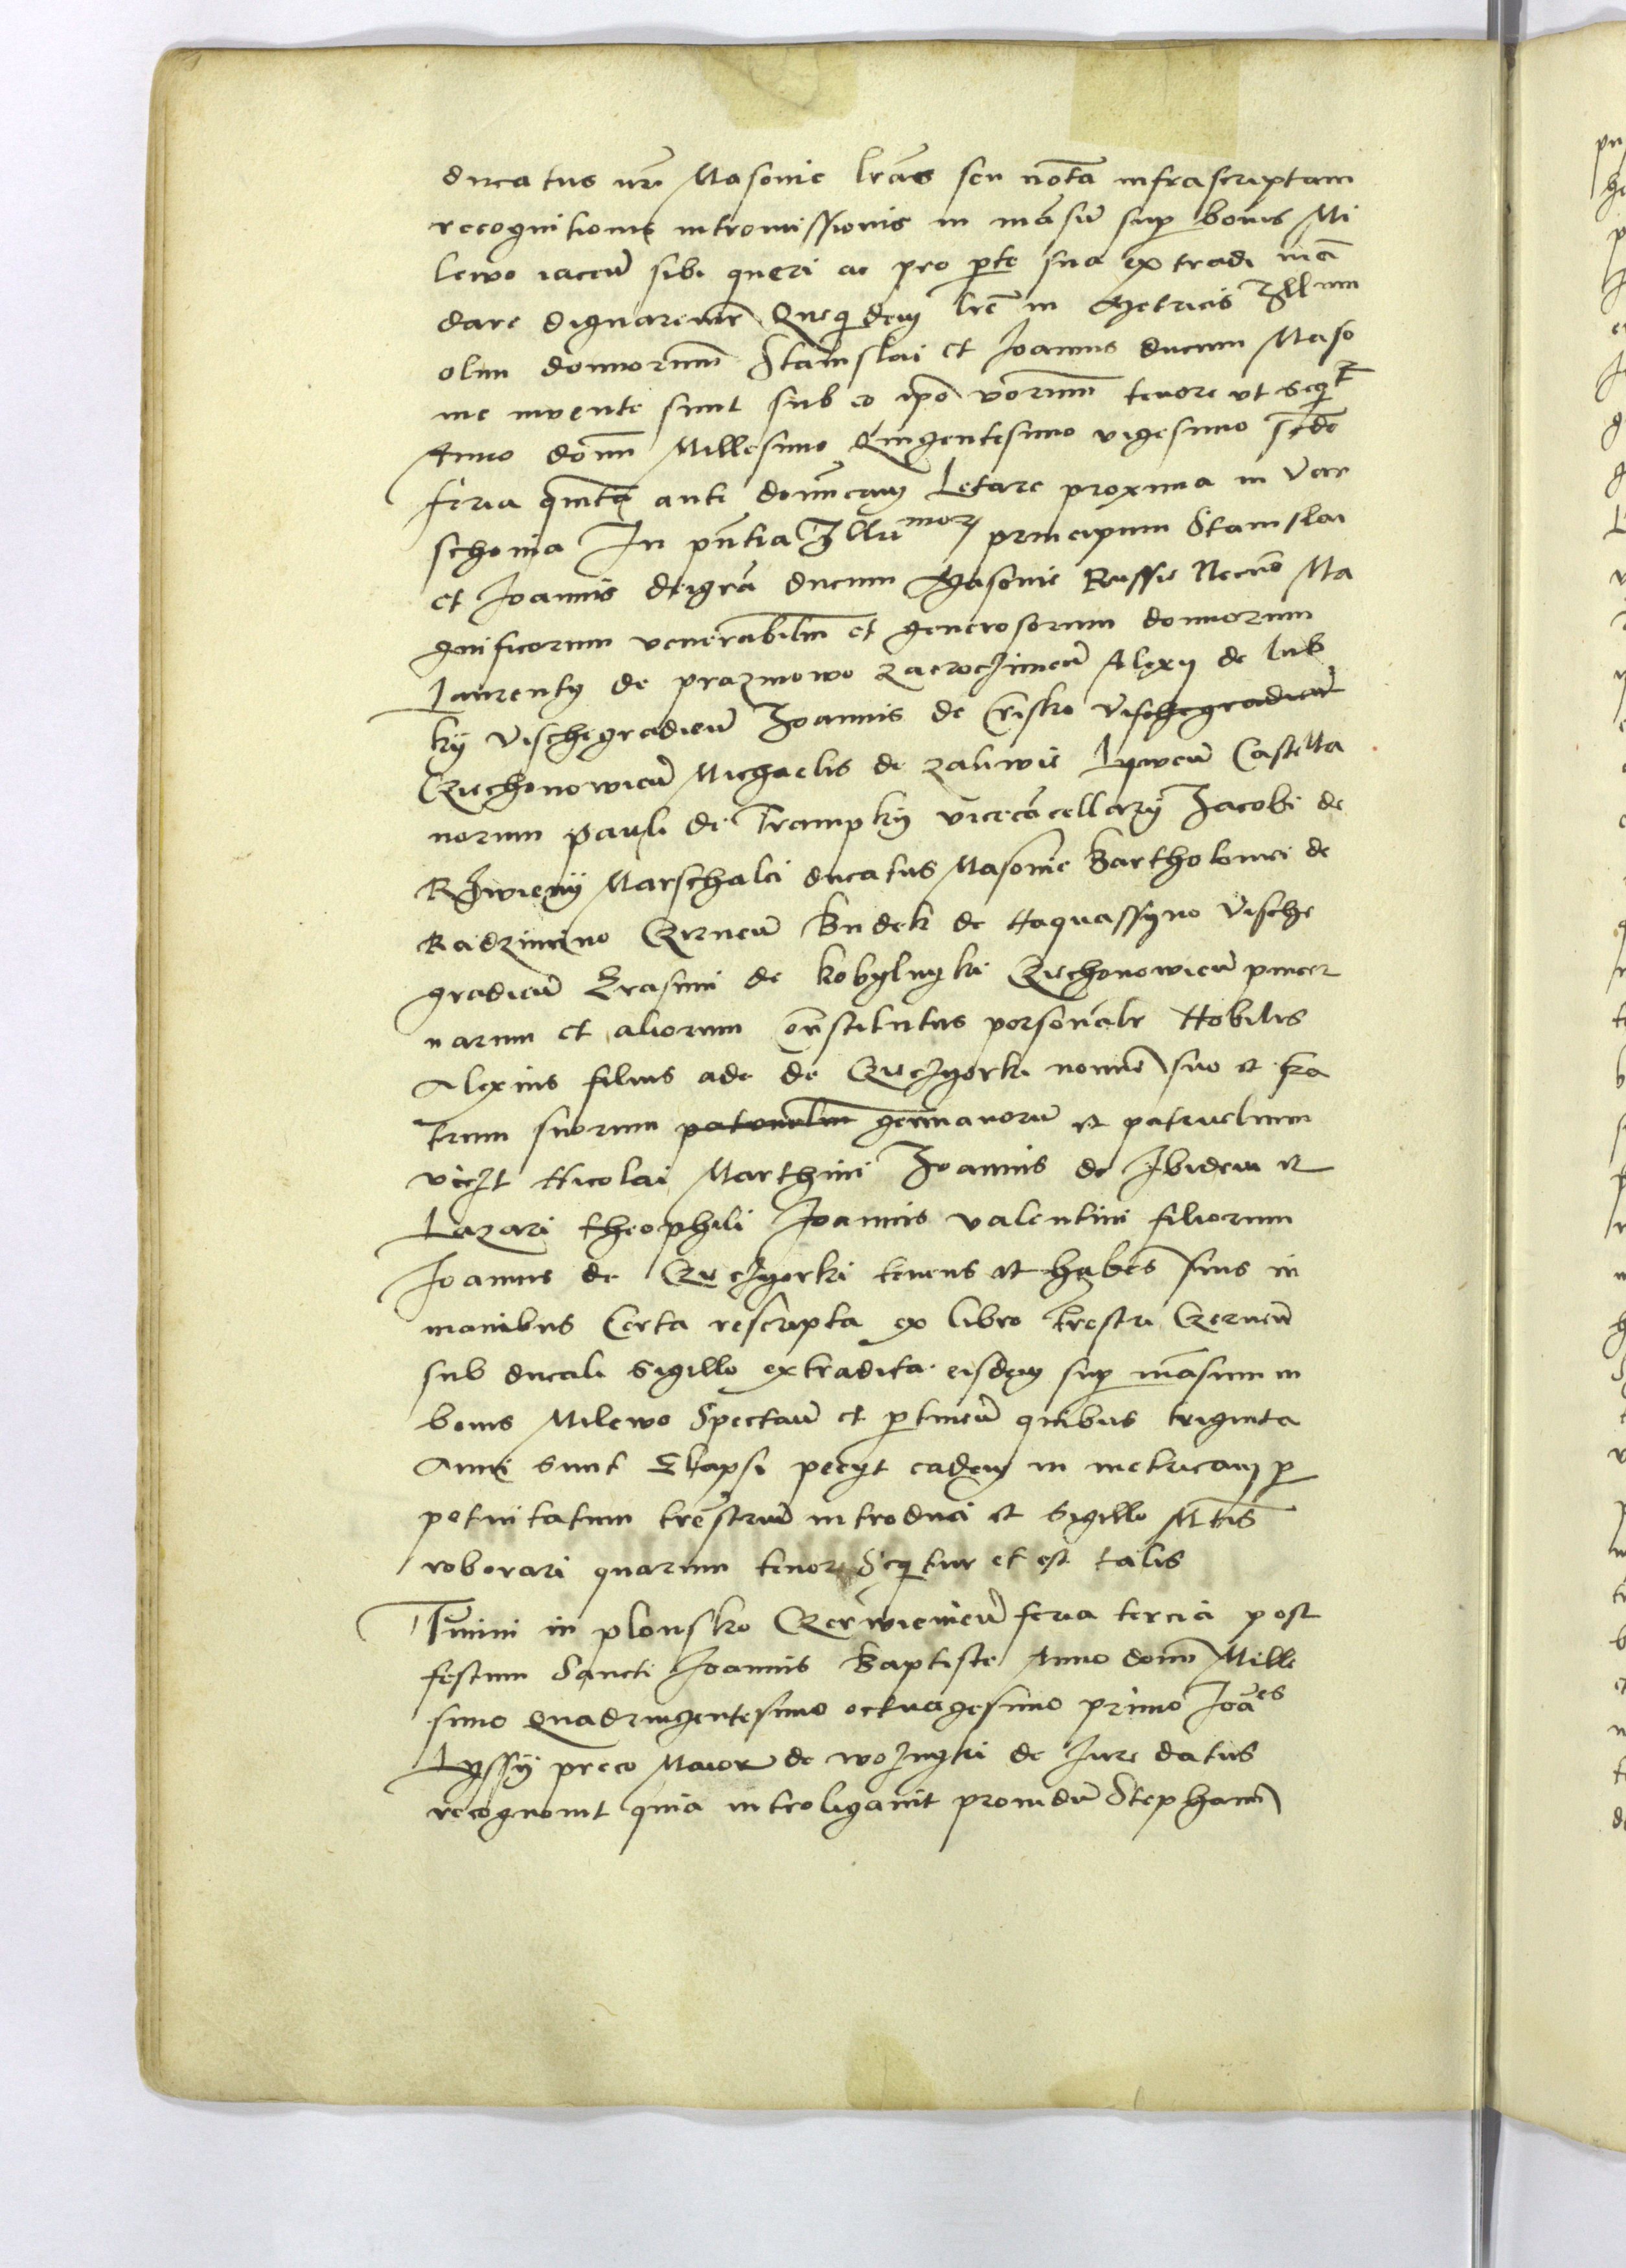 ducatus nri Masovie lras seu notã infrascriptam
recognitionis intromissionis in mãsũ sup bonis Mi
lewo iaceñ sibi queri ac pro pte sua extradi mã
dare dignaremr Quequidem lre in Metricis Illum
olim dominorum Stanislai et Joannis ducum Maso
vie invente sunt sub eo ipo verorum tenore ut sequitr
Anno domi Millesimo Quingentesimo vigesimo scdo
feria quinta ante dominicam Letare proxima in Var
schovia In pñtia Illumor principum Stanislai
et Joannis dei gra ducum Masovie Russie Necnõ Ma
gnificorum venerabilium et generosorum dominorum
Laurenty de prazmowo Zacroczimeñ Alexy de lub
ky Vischegradieñ Joannis de Crisko Vischegradieñ
Cziechonowieñ Michaelis de Zaliwie Lyweñ Castella
norum pauli de Trampky vicecãcellary Jacobi de
Rzwieny Marschalci ducatus Masovie Bartholomei de
Radzimino Czirneñ Budek de Naquassyno Vische
gradieñ Erasmi de kobylnyki Cziechonowieñ pincer
narum et aliorum constitutus personaltr Nobilis
Alexius filius ade de Cziezgorki nomine suo et fra
trum suorum patruelium germanorũ et patruelium
viclt Nicolai Marthini Joannis de Ibidem et
Lazari theophili Joannis valentini filiorum
Joannis de Cziezgorki tenens et habẽs suis in
manibus Certa rescripta ex libro trestri Czerneñ
sub ducali Sigillo extradita eisdem sup mansum in
bonis Milewo Spectañ et ptineñ quibus triginta
Anni sunt Elapsi pecyt eadem in metricam p
petuitatum trestrium introduci et Sigillo Mtis
roborari quarum tenor Sequitur et est talis
Tmini in plonsko Czerwieneñ feria tercia post
festum Sancti Joannis Baptiste Anno domi Mille
simo Quadringentesimo octuagesimo primo Joães
Lyssy preco Maior de woznyki de Jure datus
recognovit quia introligavit providũ Stephanũ